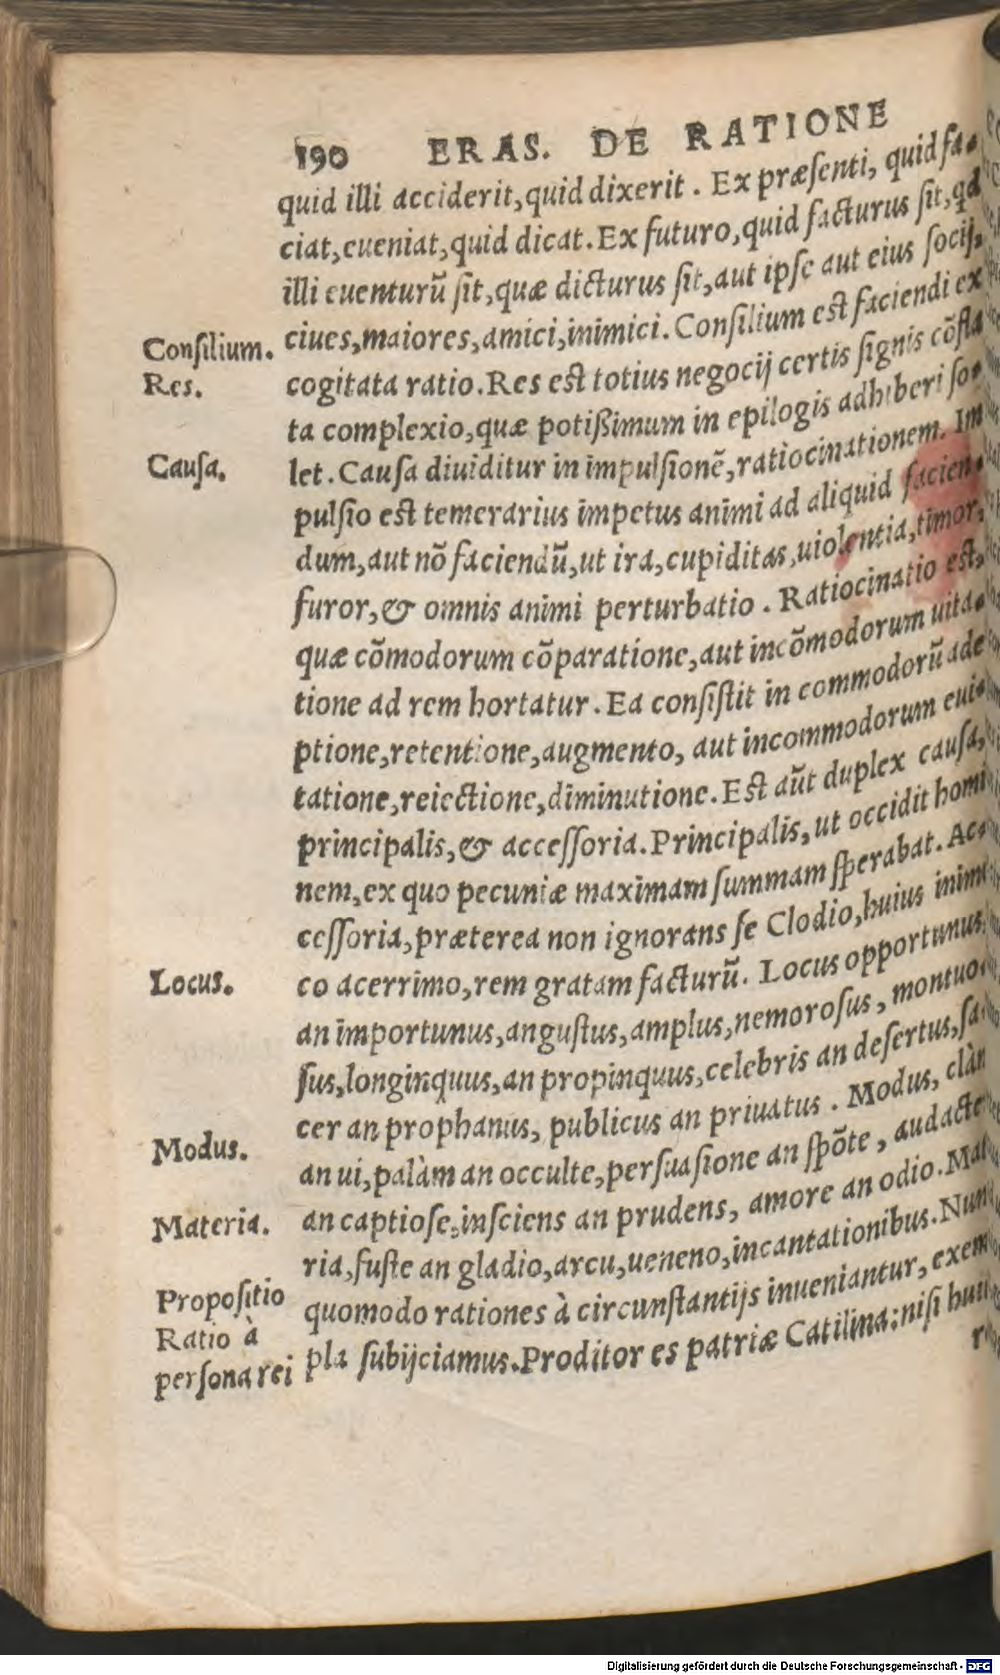 190 ERAS. DE RATIONE
quid illi acciderit, quid dixerit. Ex præsenti, quid fa-
ciat, eueniat, quid dicat. Ex futuro, quid facturus sit, qd
illi euenturū sit, quæ dicturus sit, aut ipse aut eius socij,
ciues, maiores, amici, inimici. Consilium est faciendi ex
Consilium.
cogitata ratio. Res est totius negocij certis signis cōsta
Res.
ta complexio, quæ potißimum in epilogis adhiberi so-
let. Causa diuiditur in impulsionē, ratiocinationem. Im
Causa.
pulsio est temerarius impetus animi ad aliquid facien-
dum, aut nō faciendū, ut ira, cupiditas, uiolentia, timor,
furor, & omnis animi perturbatio. Ratiocinatio est,
quæ cōmodorum cōparatione, aut incōmodorum uita-
tione ad rem hortatur. Ea consistit in commodorū ade
ptione, retentione, augmento, aut incommodorum eui-
tatione, reiectione, diminutione. Est aūt duplex causa,
principalis, & accessoria. Principalis, ut occidit homi
nem, ex quo pecuniæ maximam summam sperabat. Ac-
cessoria, præterea non ignorans se Clodio, huius inimi
co acerrimo, rem gratam facturū. Locus opportunus
Locus.
an importunus, angustus, amplus, nemorosus, montuo-
sus, longinquus, an propinquus, celebris an desertus, sa-
cer an prophanus, publicus an priuatus. Modus, clàm
an ui, palàm an occulte, persuasione an spōte, audacte
Modus.
an captiose, insciens an prudens, amore an odio. Mat
Materia.
ria, fuste an gladio, arcu, ueneno, incantationibus. Nun
quomodo rationes à circunstantijs inueniantur, exem
Propositio
pla subijciamus. Proditor es patriæ Catilina: nisi hui
Ratio à
persona rei